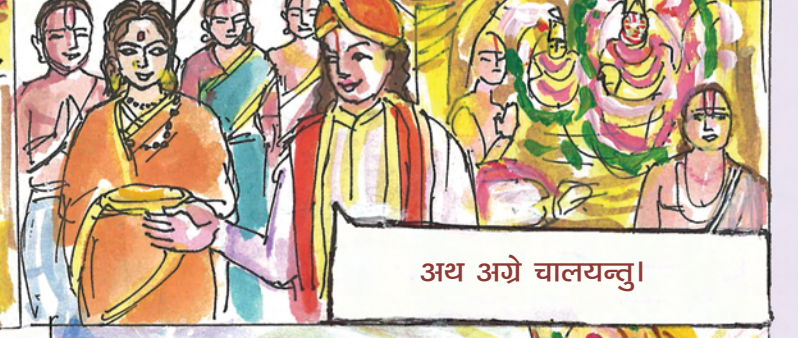 अथ अग्रे चालयन्तु।